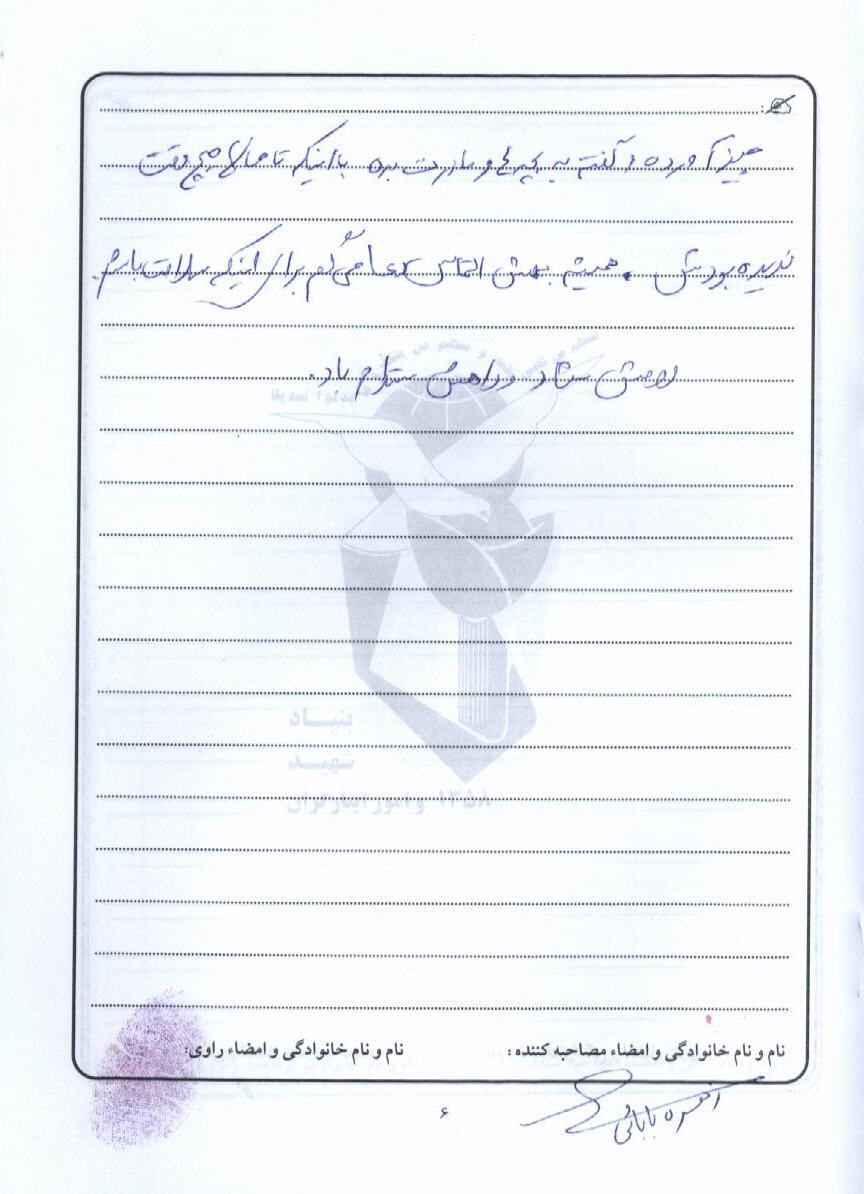 چیز آورده و گفته به بچه ها و مادرت بده با اینکه تا حالا هیچ وقت
ندیده بودش . همیشه بهش التماس دعا می گم برای اینکه سلامت باشم
روحش شاد و راهش مستدام باد.
بنیاد
شهید
۱۳۵۸ و امور ایثارگران
نام و نام خانوادگی و امضاء مصاحبه کننده :
نام و نام خانوادگی و امضاء راوی:
بابائی
۶